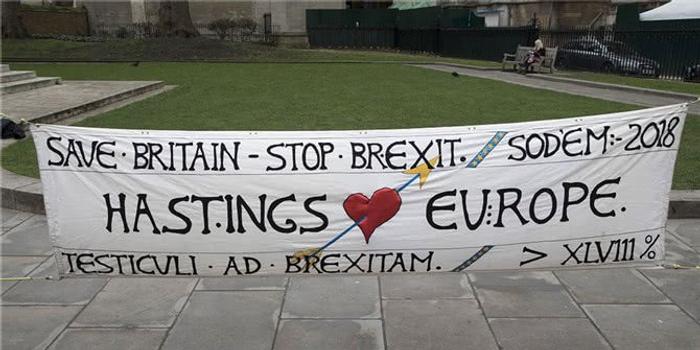 SAVE·BRITAIN-STOP·BREXIT. SODEM:-2018
HASTINGS EU:ROPE.
TESTICULI·AD·BREXITAM. > XLVIII%